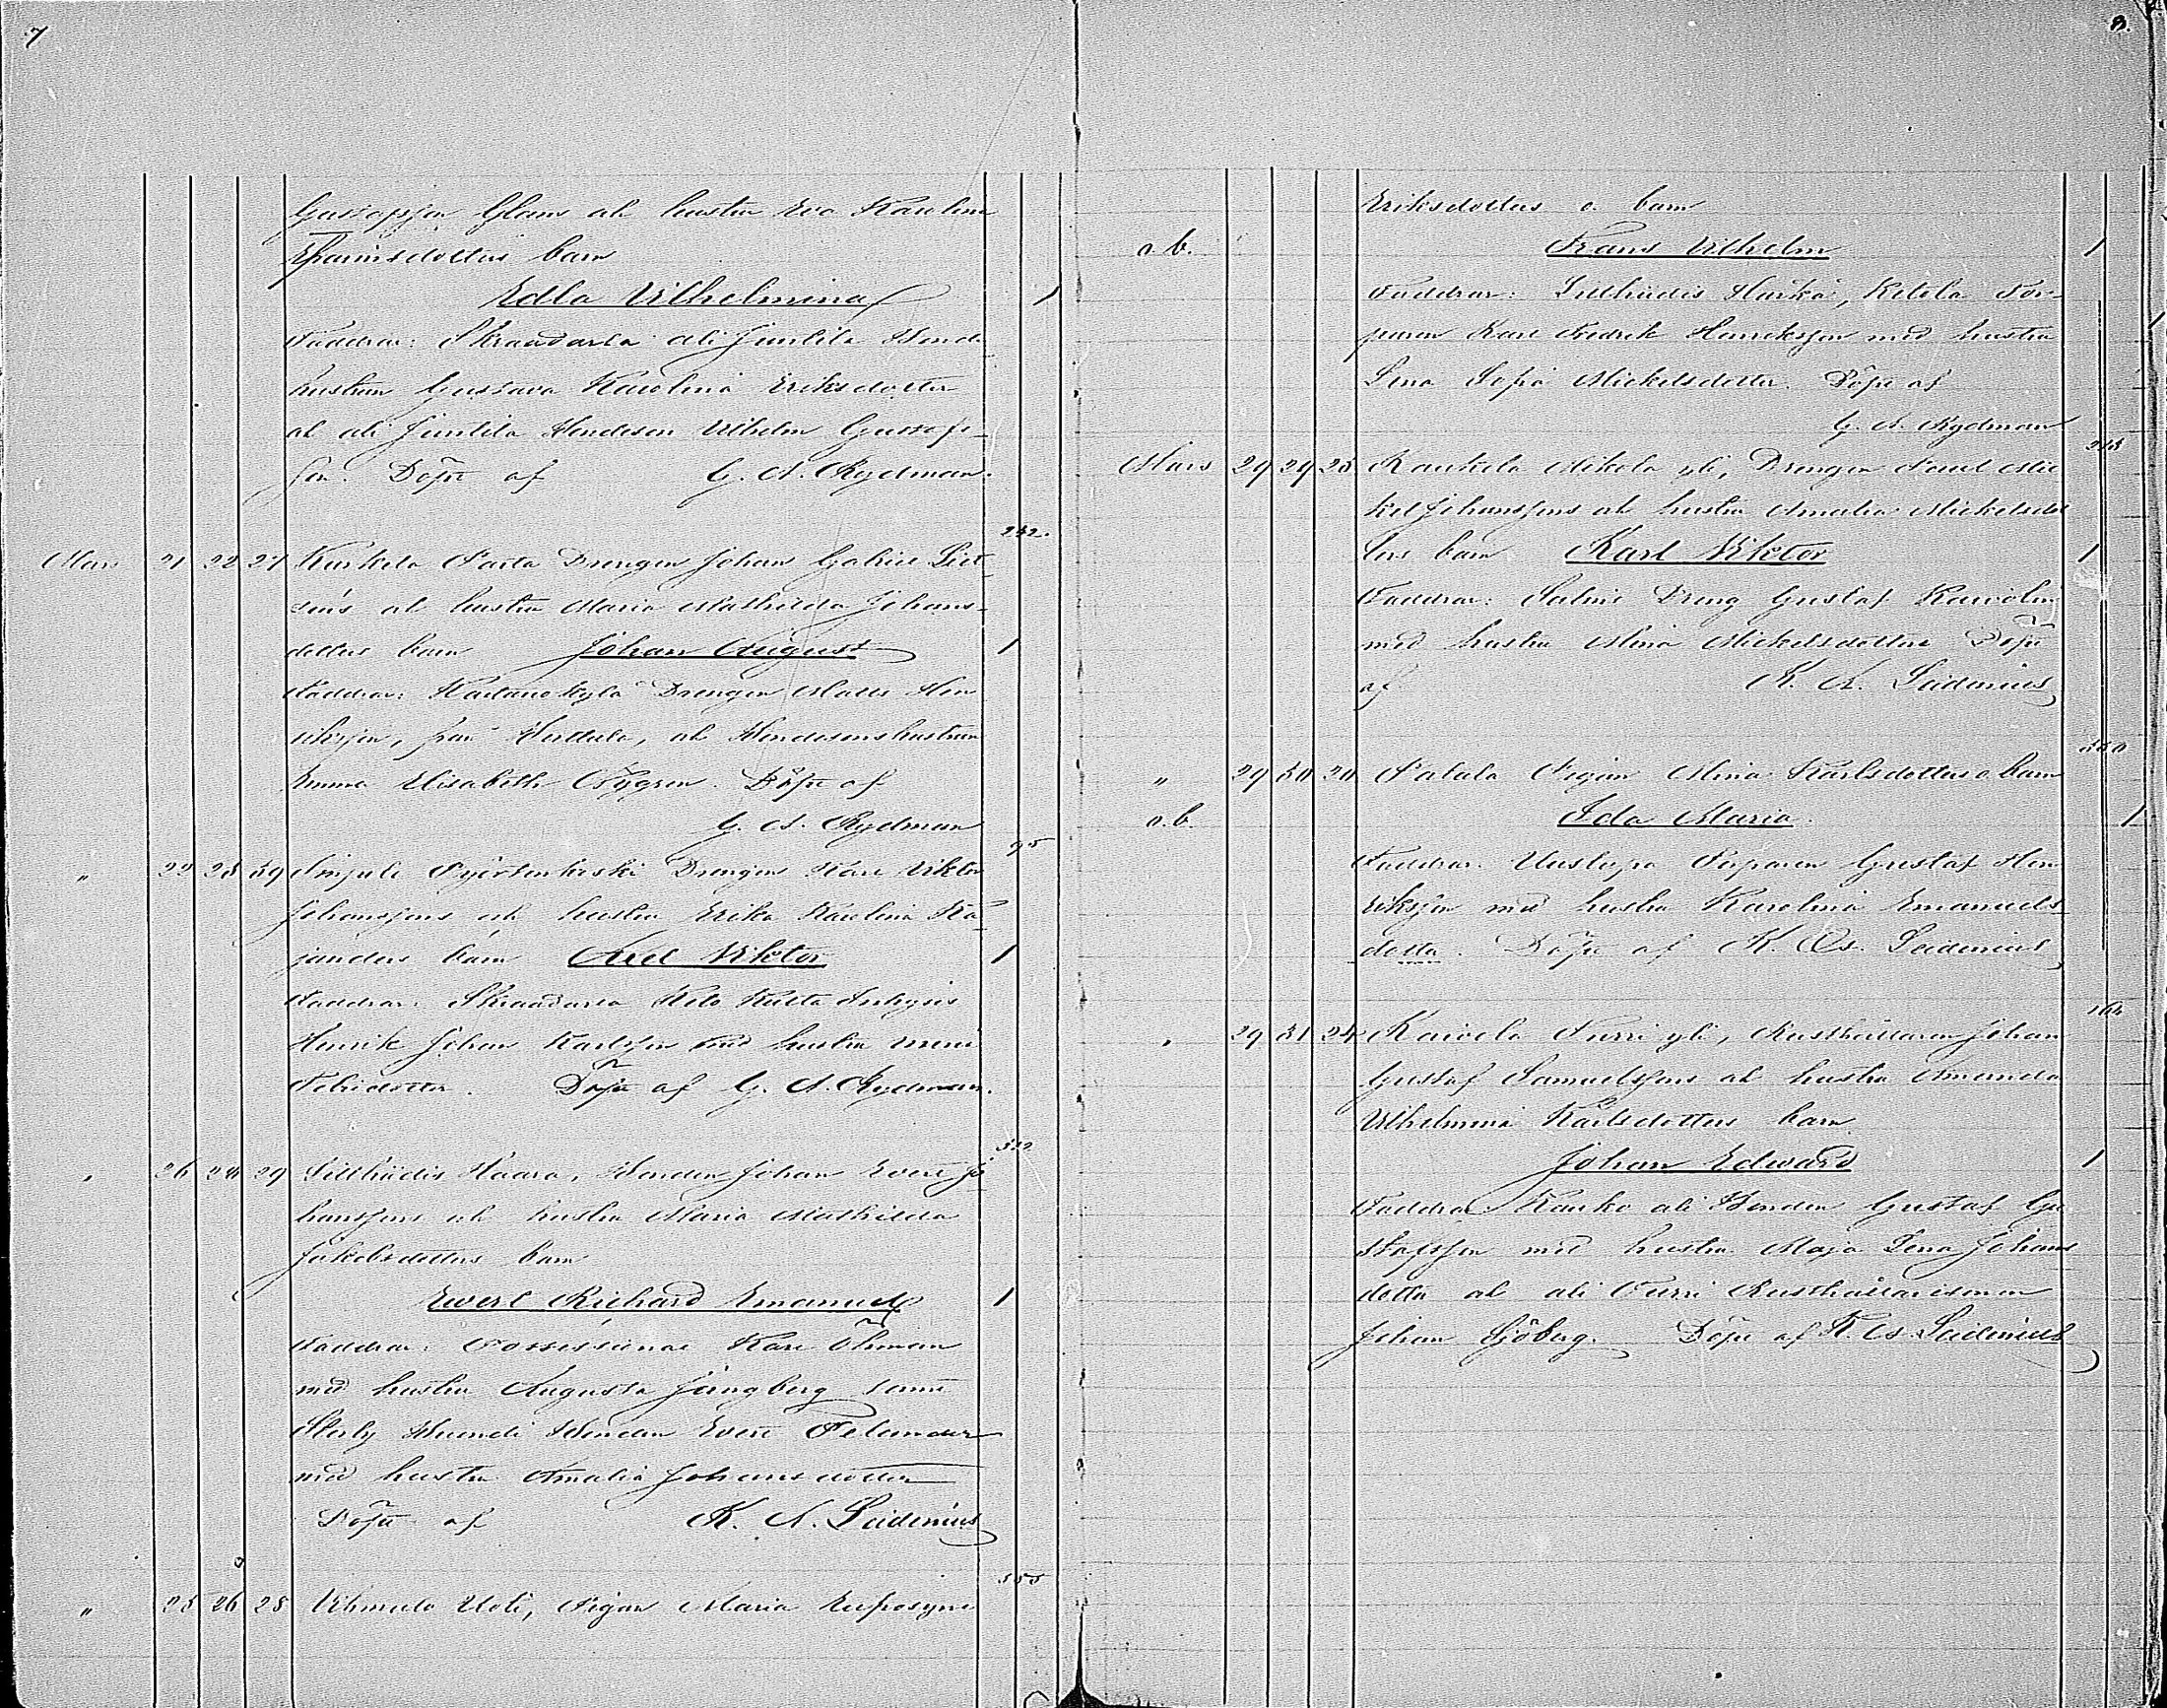 7
Gustafsson Glans och hustru Eva Karolina
Efraimsdotters barn
Edla Vilhelmina 1
Faddrar: Skraadarla ali Juntila Bonde
hustrun Gustava Karolina Eriksdotter
och ali Juntila Bondeson Vilhelm Gustafs-
son. Döpt af G. A. Rydman.
232.
Mars 21 22 27 Kurkela Parta Drengen Johan Gabriel
och hustru Maria Mathilda Johans-
dotters barn Johan August 1
Faddrar: Drengen Matts Hen
riksson, från Herttula, och Bondesonshustrun
Emma Elisabeth Nygren. Döpt af
G. A. Rydman
95
" 22 23 39 Drengen Karl Viktor
Johanssons och hustru Erika Karolina Ka
janders barn Axel Viktor 1
Faddrar: Skraadarla Kelo Inhysis
Henrik Johan Karlsson med hustru Mina
dotter. Döpt af G. A. Rydman.
312
" 26 28 29 Sillhiidis Haara, Bonden Johan Evert Jo
hanssons och hustru Maria Mathilda
Jakobsdotters barn
Evert Richard Emanuel 1
Faddrar: Possessionat Karl Öhman
med hustru Augusta Ljungberg samt
Bonden Evert Felander
med hustru Amalia Johansdotter
Döpt af K. A. Leidenius
355
" 25 26 28 Uoti, Pigan Maria Eufrosyne
8.
Eriksdotters o. barn
o. b. Frans Vilhelm 1
Faddrar: Sillhiidis Harka, Ketola Tor-
paren Karl Fredrik Henriksson med hustru
Lena Sofia Mickelsdotter. Döpt af
G. A. Rydman
218
Mars 29 29 25 Kaukola Mikola yli, Drengen Emil Mic
kel Johanssons och hustru Amalia Mickelsdot
ters barn Karl Viktor 1
Faddrar: Dreng Gustaf
med hustru Mina Mickelsdotter Döpt
af K. A. Leidenius
" 29 30 20 Patala Pigan Mina Karlsdotters o barn
o. b. Ida Maria. 1
Faddrar. Uustupa Torparen Gustaf Hen
riksson med hustru Karolina Emanuels
dotter. Döpt af K. A. Leidenius
164
" 29 31 24 Karvela Furri yli, Rusthållaren Johan
Gustaf Samuelssons och hustru Amanda
Vilhelmina Karlsdotters barn
Johan Edvard 1
Faddrar Kauko ali Bonden Gustaf Gu
stafsson med hustru Maja Lena Johans
dotter och ali Furri Rusthållaresonen
Johan Sjöberg. Döpt af K. A. Leidenius